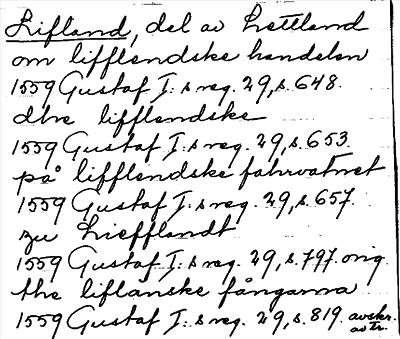 Lifland, del av Lettland
om lifflendske handelen
1559 Gustaf I: s reg. 29, s. 648.
dhe lifflendske
1559 Gustaf I: s reg. 29, s. 653.
på lifflendske fahrvatnet
1559 Gustaf I: s reg. 29, s. 657.
zu Liefflandt
1559 Gustaf I: s reg. 29, s. 797. orig.
the liflänske fångarna
1559 Gustaf I: s reg. 29, s. 819. avskr.
av tr.